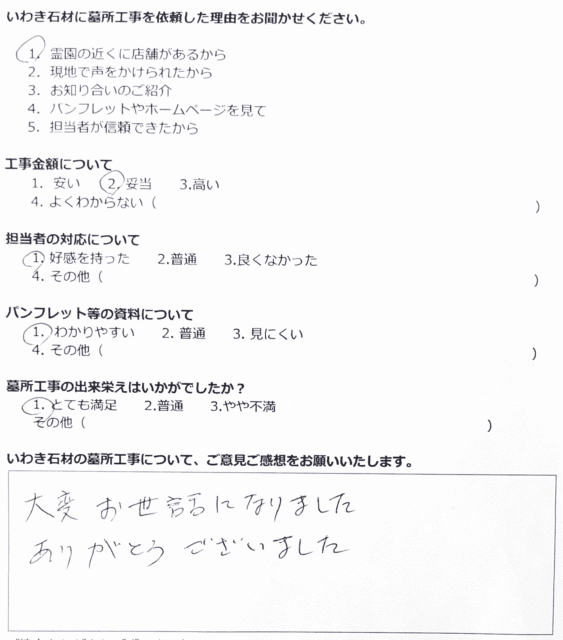 いわき石材に墓所工事を依頼した理由をお聞かせください。
1. 霊園の近くに店舗があるから
2. 現地で声をかけられたから
3. お知り合いのご紹介
4. パンフレットやホームページを見て
5. 担当者が信頼できたから
工事金額について
1. 安い 2. 妥当 3.高い
4. よくわからない（ ）
担当者の対応について
1. 好感を持った 2.普通 3.良くなかった
4. その他（ ）
パンフレット等の資料について
1. わかりやすい 2. 普通 3. 見にくい
4. その他（ ）
墓所工事の出来栄えはいかがでしたか？
1. とても満足 2.普通 3.やや不満
その他（ ）
いわき石材の墓所工事について、ご意見ご感想をお願いいたします。
大変 お世話になりました
ありがとう ございました